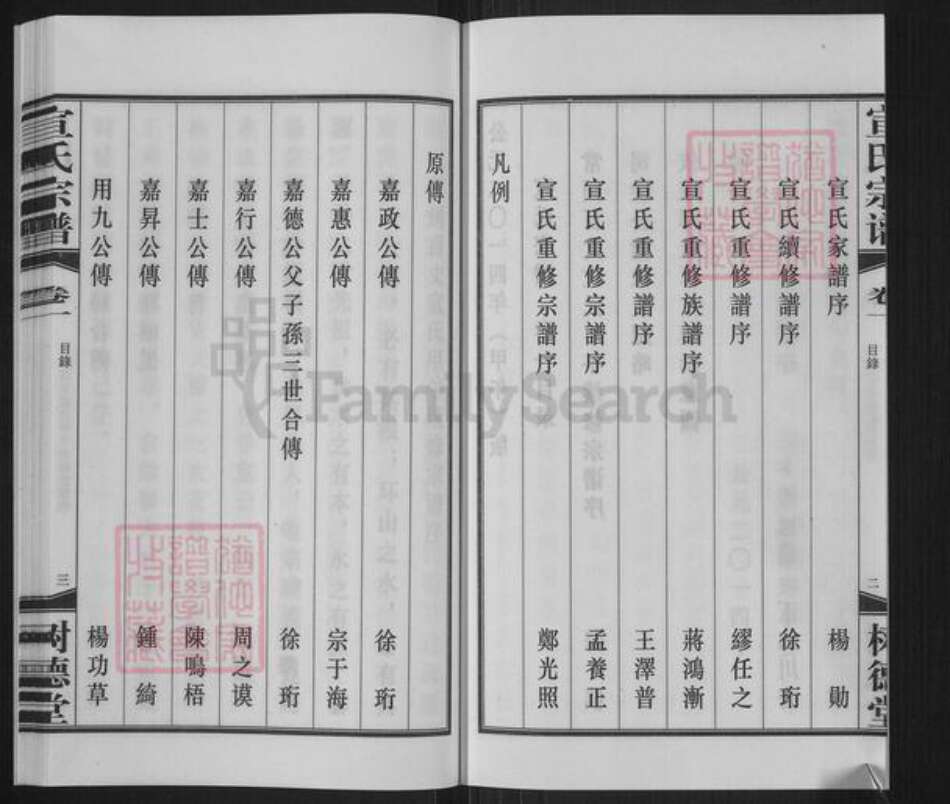 宣氏宗谱
卷一
目錄
二
树德堂
宣氏家譜序 楊勛
宣氏續修譜序 徐珩
宣氏重修譜序 繆任之
宣氏重修族譜序 蔣鴻漸
宣氏重修譜序 王澤普
宣氏重修宗譜序 孟養正
宣氏重修宗譜序 鄭光照
凡例
原傳
嘉政公傳 徐珩
嘉惠公傳 宗于海
嘉德公父子孫三世合傳 徐珩
嘉行公傳 周之謨
嘉士公傳 陳鳴梧
嘉昇公傳 鍾綺
用九公傳 楊功草
宣氏宗譜
卷一
目錄
三
树德堂
FamilySearch